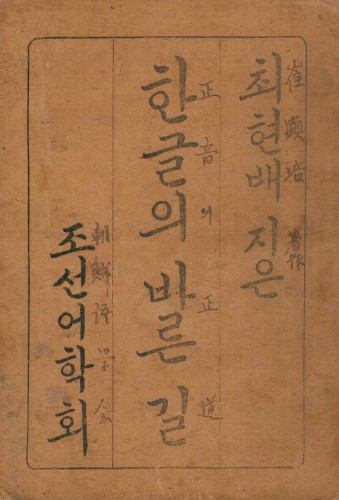 최현배 지은
崔鉉培 著作
한글의 바른 길
正音의 正道
조선어학회
朝鮮語学会